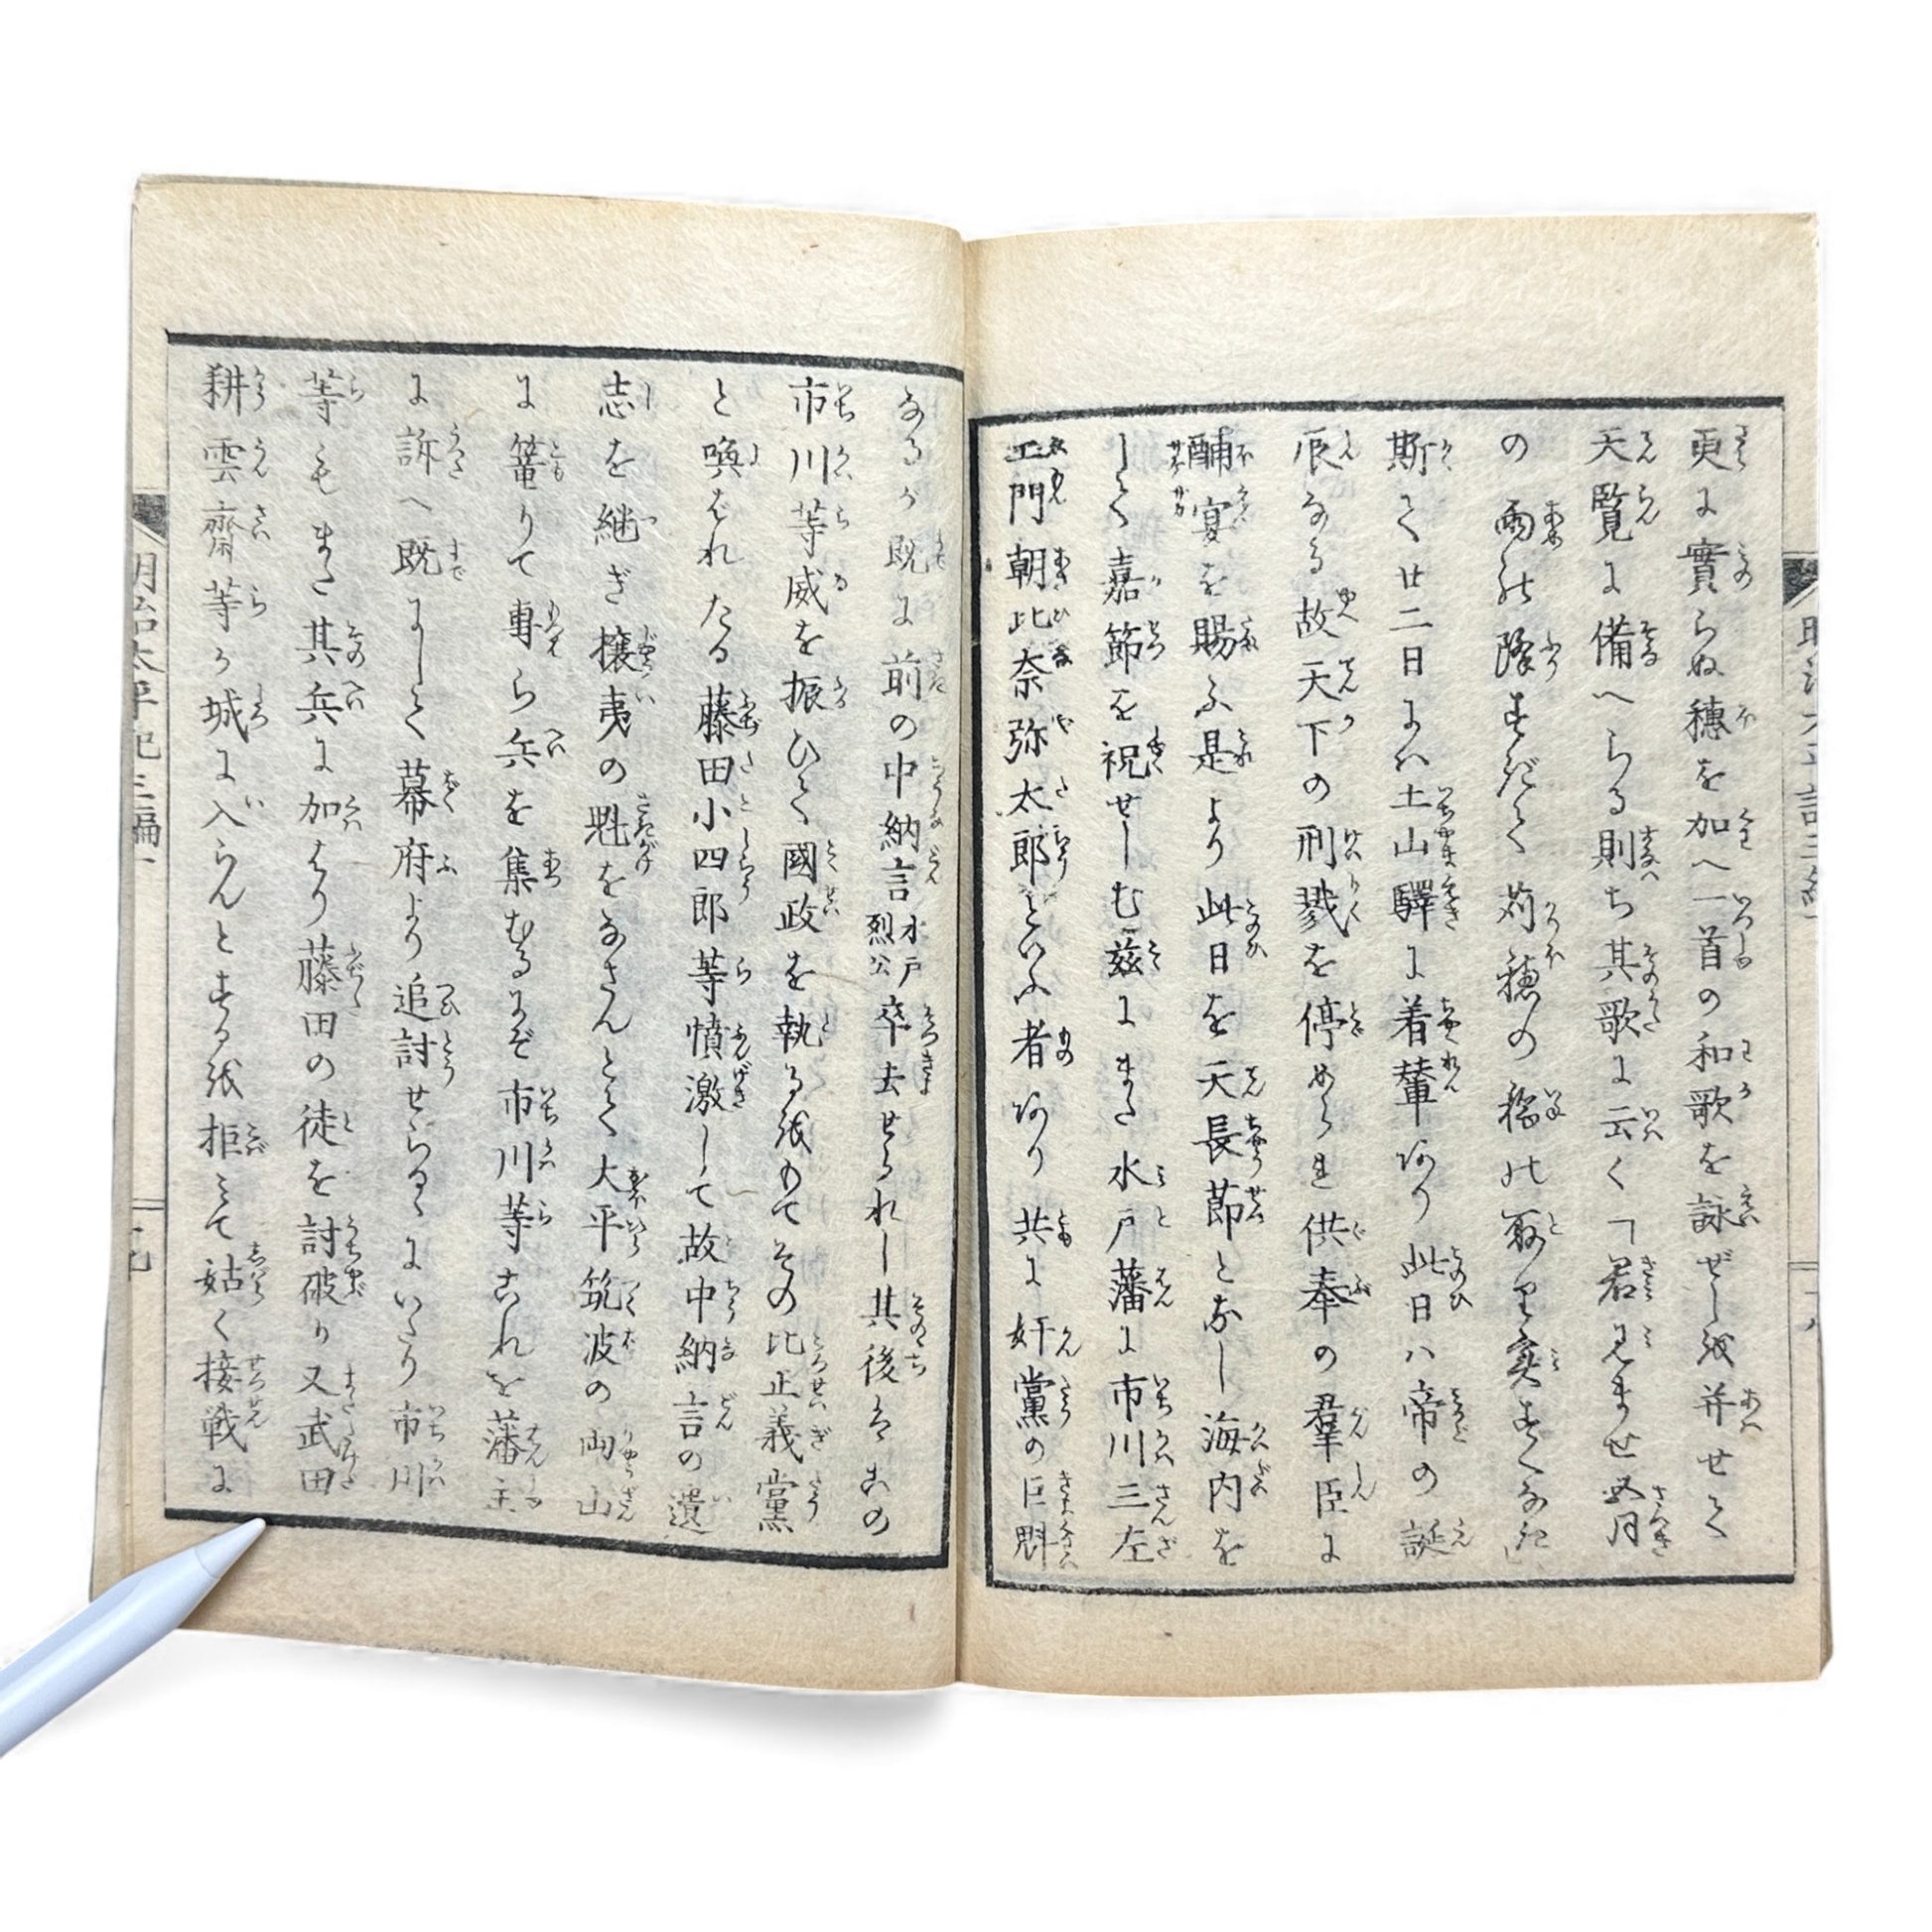 更に實らぬ穗を加へ一首の和歌を詠ぜしを并せて
天覧に備へらる則ち其歌に云く「君見ませ五月
の雨の降すぎて苅穗の稲の取り実すくなき」
斯て廿二日には土山驛に着輦あり此日ハ帝の誕
辰なる故天下の刑戮を停められ供奉の羣臣に
酺宴を賜ふ是より此日を天長節となし海内を
して嘉節を祝せしむ茲にまた水戸藩に市川三左
エ門朝比奈弥太郎といふ者あり共に奸黨の巨魁
なるが既に前の中納言水戸烈公卒去せられし其後はこの
市川等威を振ひて國政を執るをもてその比正義黨
と喚ばれたる藤田小四郎等憤激して故中納言の遺
志を継ぎ攘夷の魁をなさんとて大平筑波の両山
に篭りて專ら兵を集むるにぞ市川等これを藩主
に訴へ既にして幕府より追討せらるゝにいたり市川
等もまた其兵に加はり藤田の徒を討破り又武田
耕雲齋等が城に入らんとするを拒みて姑く接戦に
明治太平記三編一